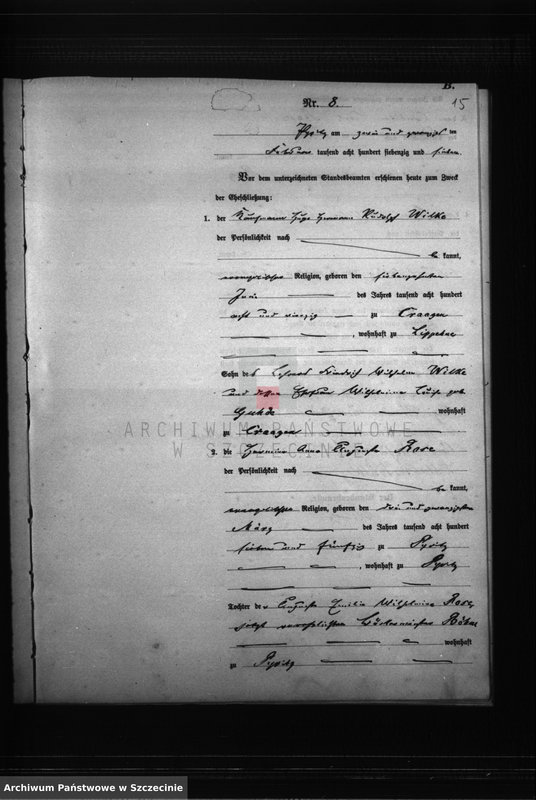 B.
Nr. 8.
15
Pyritz am zwei und zwanzigsten
Februar tausend acht hundert siebenzig und sieben.
Vor dem unterzeichneten Standesbeamten erschienen heute zum Zweck
der Eheschließung:
1. der Kaufmann Hugo Hermann Rudolph Wilke
der Persönlichkeit nach
be kannt,
evangelischer Religion, geboren den siebenzehnten
Juni des Jahres tausend acht hundert
acht und vierzig zu Craazen
, wohnhaft zu Lippehne
Sohn des Lehrers Friedrich Wilhelm Wilke
und dessen Ehefrau Wilhelmine Luise geb.
wohnhaft
zu Craazen
ARCHIWUM PAŃSTWOWE
W SZCZECINIE
2. die Hermine Anna Auguste Rose
der Persönlichkeit nach
be kannt,
evangelischer Religion, geboren den drei und zwanzigsten
März des Jahres tausend acht hundert
sieben und fünfzig zu Pyritz
, wohnhaft zu Pyritz
Tochter der Auguste Emilie Wilhelmine Rose,
jetzt verehelichten Bäckermeister
wohnhaft
zu Pyritz
Archiwum Państwowe w Szczecinie